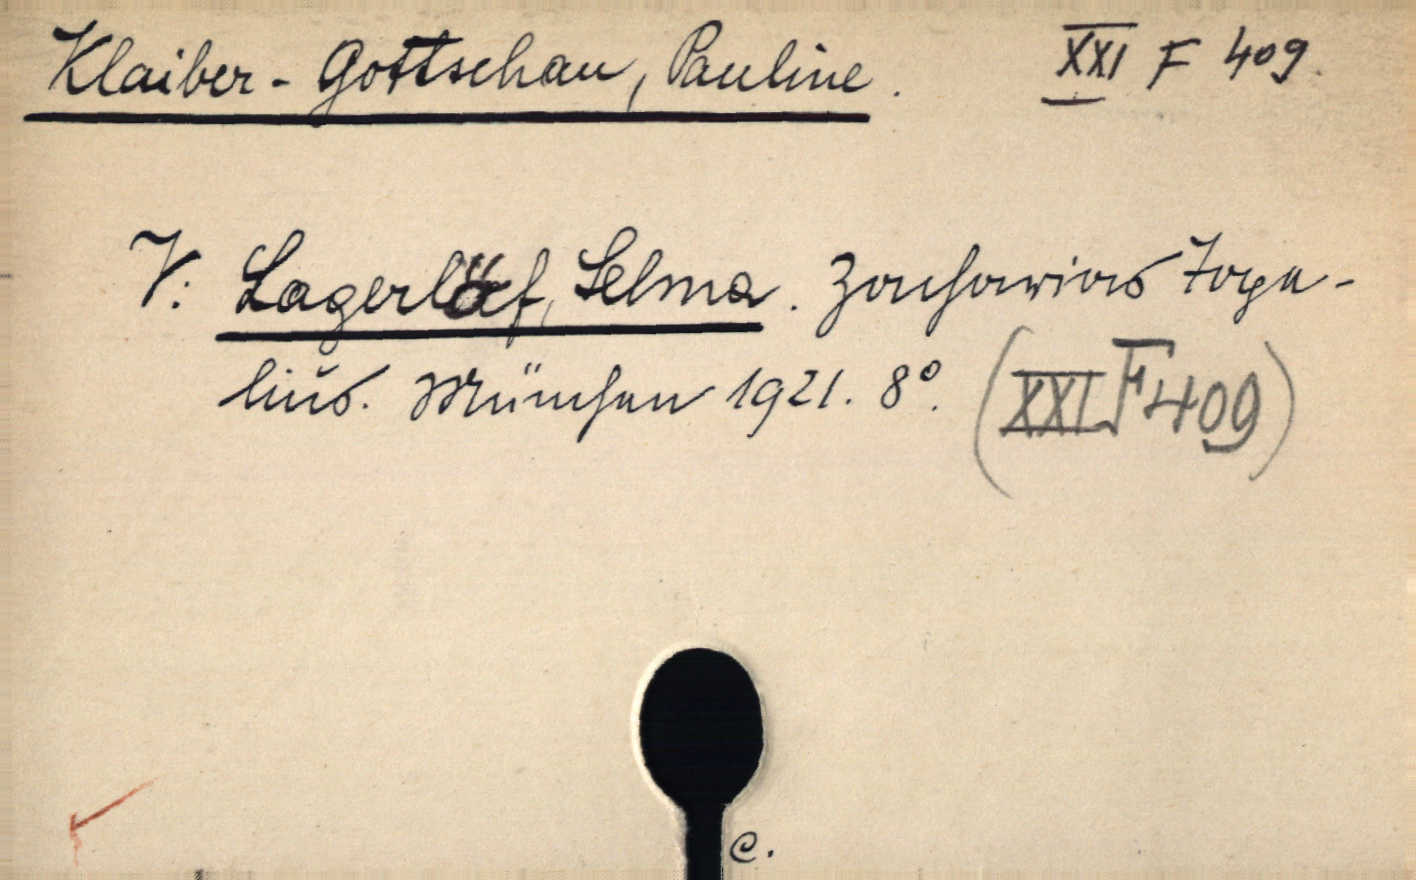 Klaiber-Gottschau, Pauline. XXI F 409.
V: Lagerlöf, Selma. Zacharias Tope-
lius. München 1921. 8°. (XXI F 409)
C.